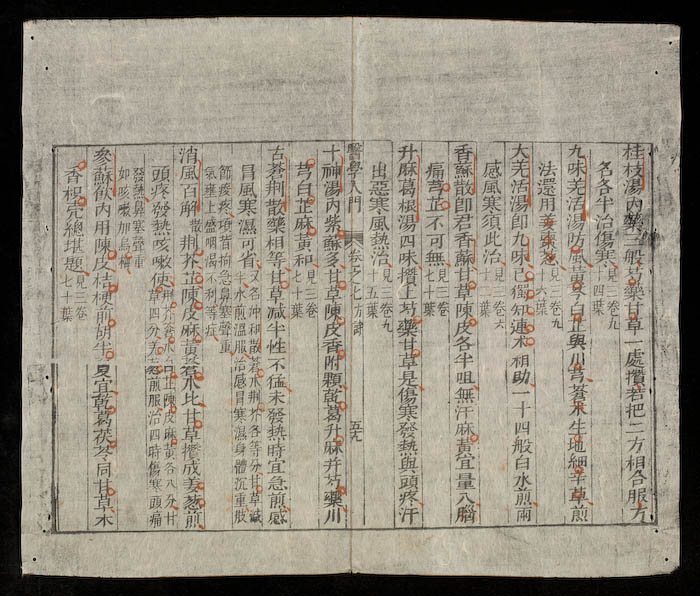 桂枝湯內藥三般芍藥甘草一處攢若把二方相合服方
名各半治傷寒見三卷九十四葉
九味羌活湯防風黃芩白芷與川芎蒼朮生地細辛草煎
法還用姜棗葱見三卷九十六葉
大羌活湯即九味己獨知連朮相助一十四般白水煎兩
感風寒須此治見三卷六十一葉
香蘇散即君香蘇甘草陳皮各半咀無汗麻黃宜量入腦
痛芎芷不可無見三卷七十葉
升麻葛根湯四味攢上芍藥甘草是傷寒發熱與頭疼汗
出惡寒風熱治見三卷九十五葉
醫學入門 卷之七方詩 五九
十神湯內紫蘇多甘草陳皮香附顆乾葛升麻并芍藥川
芎白芷麻黃和見三卷七十葉
古蒼荆散藥相等甘草減半性不猛未發熱時宜急煎感
冒風寒濕可省又名沖和散蒼朮荆芥各等分甘草減
半水煎溫服治感冒寒濕身體沉重肢
節痠疼項背拘急鼻塞聲重
氣壅上盛咽渴不利等症
消風百解散荆芥芷陳皮麻黃蒼朮比甘草攢成姜葱煎
頭疼發熱咳嗽使麻黃各八分甘
草四分姜葱煎服治四時傷寒頭痛
發熱鼻塞聲重
如咳嗽加烏梅
參蘇飲內用陳皮桔梗前胡半夏宜乾葛茯苓同甘草木
香枳壳總堪題見三卷七十葉